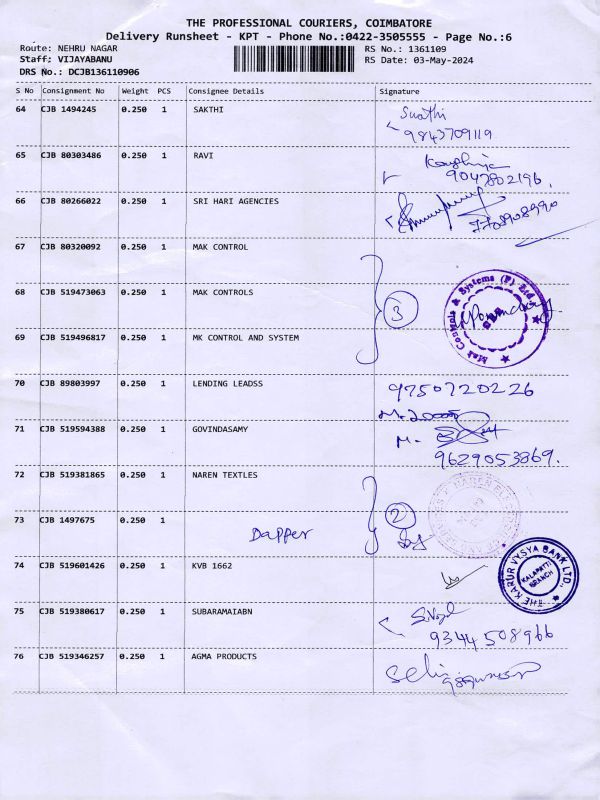 THE PROFESSIONAL COURIERS, COIMBATORE
Delivery Runsheet - KPT - Phone No.:0422-3505555 - Page No.:6
Route: NEHRU NAGAR
RS No.: 1361109
Staff: VIJAYABANU
RS Date: 03-May-2024
DRS No.: DCJB136110906
S No Consignment No Weight PCS Consignee Details Signature
64 CJB 1494245 0.250 1 SAKTHI Swathi
9843709119
65 CJB 80303486 0.250 1 RAVI
9047802196
66 CJB 80266022 0.250 1 SRI HARI AGENCIES
7708908990
67 CJB 80320092 0.250 1 MAK CONTROL
68 CJB 519473063 0.250 1 MAK CONTROLS 3
Mak Controls & Systems (P) Ltd
69 CJB 519496817 0.250 1 MK CONTROL AND SYSTEM
70 CJB 89803997 0.250 1 LENDING LEADSS 9750720226
71 CJB 519594388 0.250 1 GOVINDASAMY M.
9629053869.
72 CJB 519381865 0.250 1 NAREN TEXTLES
2
73 CJB 1497675 0.250 1 Dapper
74 CJB 519601426 0.250 1 KVB 1662
THE KARUR VYSYA BANK LTD.,
KALAPATTI
BRANCH
75 CJB 519380617 0.250 1 SUBARAMAIABN
9344508966
76 CJB 519346257 0.250 1 AGMA PRODUCTS